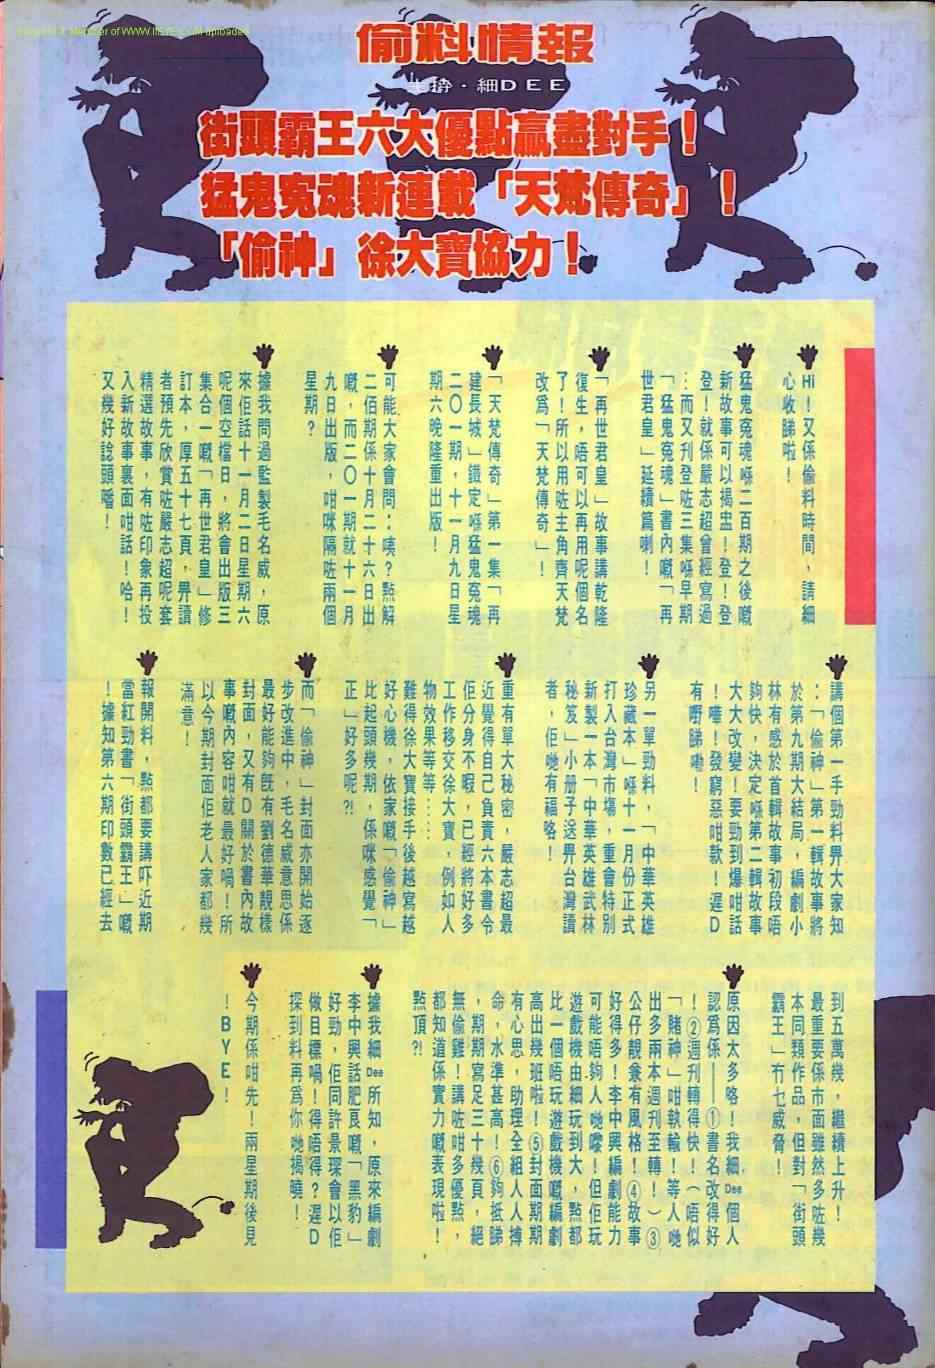 偷料情報
主撈．細DEE
街頭霸王六大優點贏盡對手！
猛鬼寃魂新連載「天梵傳奇」！
「偷神」徐大寶協力！
Hi！又係偷料時間，請細
心收睇啦！
猛鬼寃魂喺二百期之後嘅
新故事可以揭盅！登！登
登！就係嚴志超曾經寫過
…而又刊登咗三集喺早期
「猛鬼寃魂」書內嘅「再
世君皇」延續篇喇！
「再世君皇」故事講乾隆
復生，唔可以再用呢個名
了！所以用咗主角齊天梵
改爲「天梵傳奇」！
「天梵傳奇」第一集「再
建長城」鐵定喺猛鬼寃魂
二〇一期，十一月九日星
期六晚隆重出版！
可能大家會問：咦？點解
二佰期係十月二十六日出
嘅，而二〇一期就十一月
九日出版，咁咪隔咗兩個
星期？
據我問過監製毛名威，原
來佢話十一月二日星期六
呢個空檔日，將會出版三
集合一嘅「再世君皇」修
訂本，厚五十七頁，畀讀
者預先欣賞咗嚴志超呢套
精選故事，有咗印象再投
入新故事裏面咁話！哈！
又幾好諗頭噃！
講個第一手勁料畀大家知
：「偷神」第一輯故事將
於第九期大結局，編劇小
林有感於首輯故事初段唔
夠快，決定喺第二輯故事
大大改變！要勁到爆咁話
！嘩！發窮惡咁款！遲D
有嘢睇嘞！
另一單勁料，「中華英雄
珍藏本」喺十一月份正式
打入台灣市場，重會特別
新製一本「中華英雄武林
秘笈」小册子送畀台灣讀
者，佢哋有福咯！
重有單大秘密，嚴志超最
近覺得自己負責六本書令
佢分身不暇，已經將好多
工作移交徐大寶，例如人
物效果等等……
難得徐大寶接手後越寫越
好心機，依家嘅「偷神」
比起頭幾期，係咪感覺「
正」好多呢？！
而「偷神」封面亦開始逐
步改進中，毛名威意思係
最好能夠旣有劉德華靚樣
封面，又有D關於書內故
事嘅內容咁就最好喎！所
以今期封面佢老人家都幾
滿意！
報開料，點都要講吓近期
當紅勁書「街頭霸王」嘅
！據知第六期印數已經去
到五萬幾，繼續上升！
最重要係市面雖然多咗幾
本同類作品，但對「街頭
霸王」冇乜威脅！
原因太多咯！我細Dee個人
認爲係——①書名改得好
！②週刊轉得快！（唔似
「賭神」咁執輸！等人哋
出多兩本週刊至轉！）③
公仔靚兼有風格！④故事
好得多！李中興編劇能力
可能唔夠人哋嚟！但佢玩
遊戲機由細玩到大，點都
比一個唔玩遊戲機嘅編劇
高出幾班啦！⑤封面期期
有心思，助理全組人人搏
命，水準甚高！⑥夠抵睇
，期期寫足三十幾頁，絕
無偷雞！講咗咁多優點，
都知道係實力嘅表現啦！
點頂？！
據我細Dee所知，原來編劇
李中興話肥良嘅「黑豹」
好勁，佢同許景琛會以佢
做目標喎！得唔得？遲D
探到料再爲你哋揭曉！
今期係咁先！兩星期後見
！BYE！